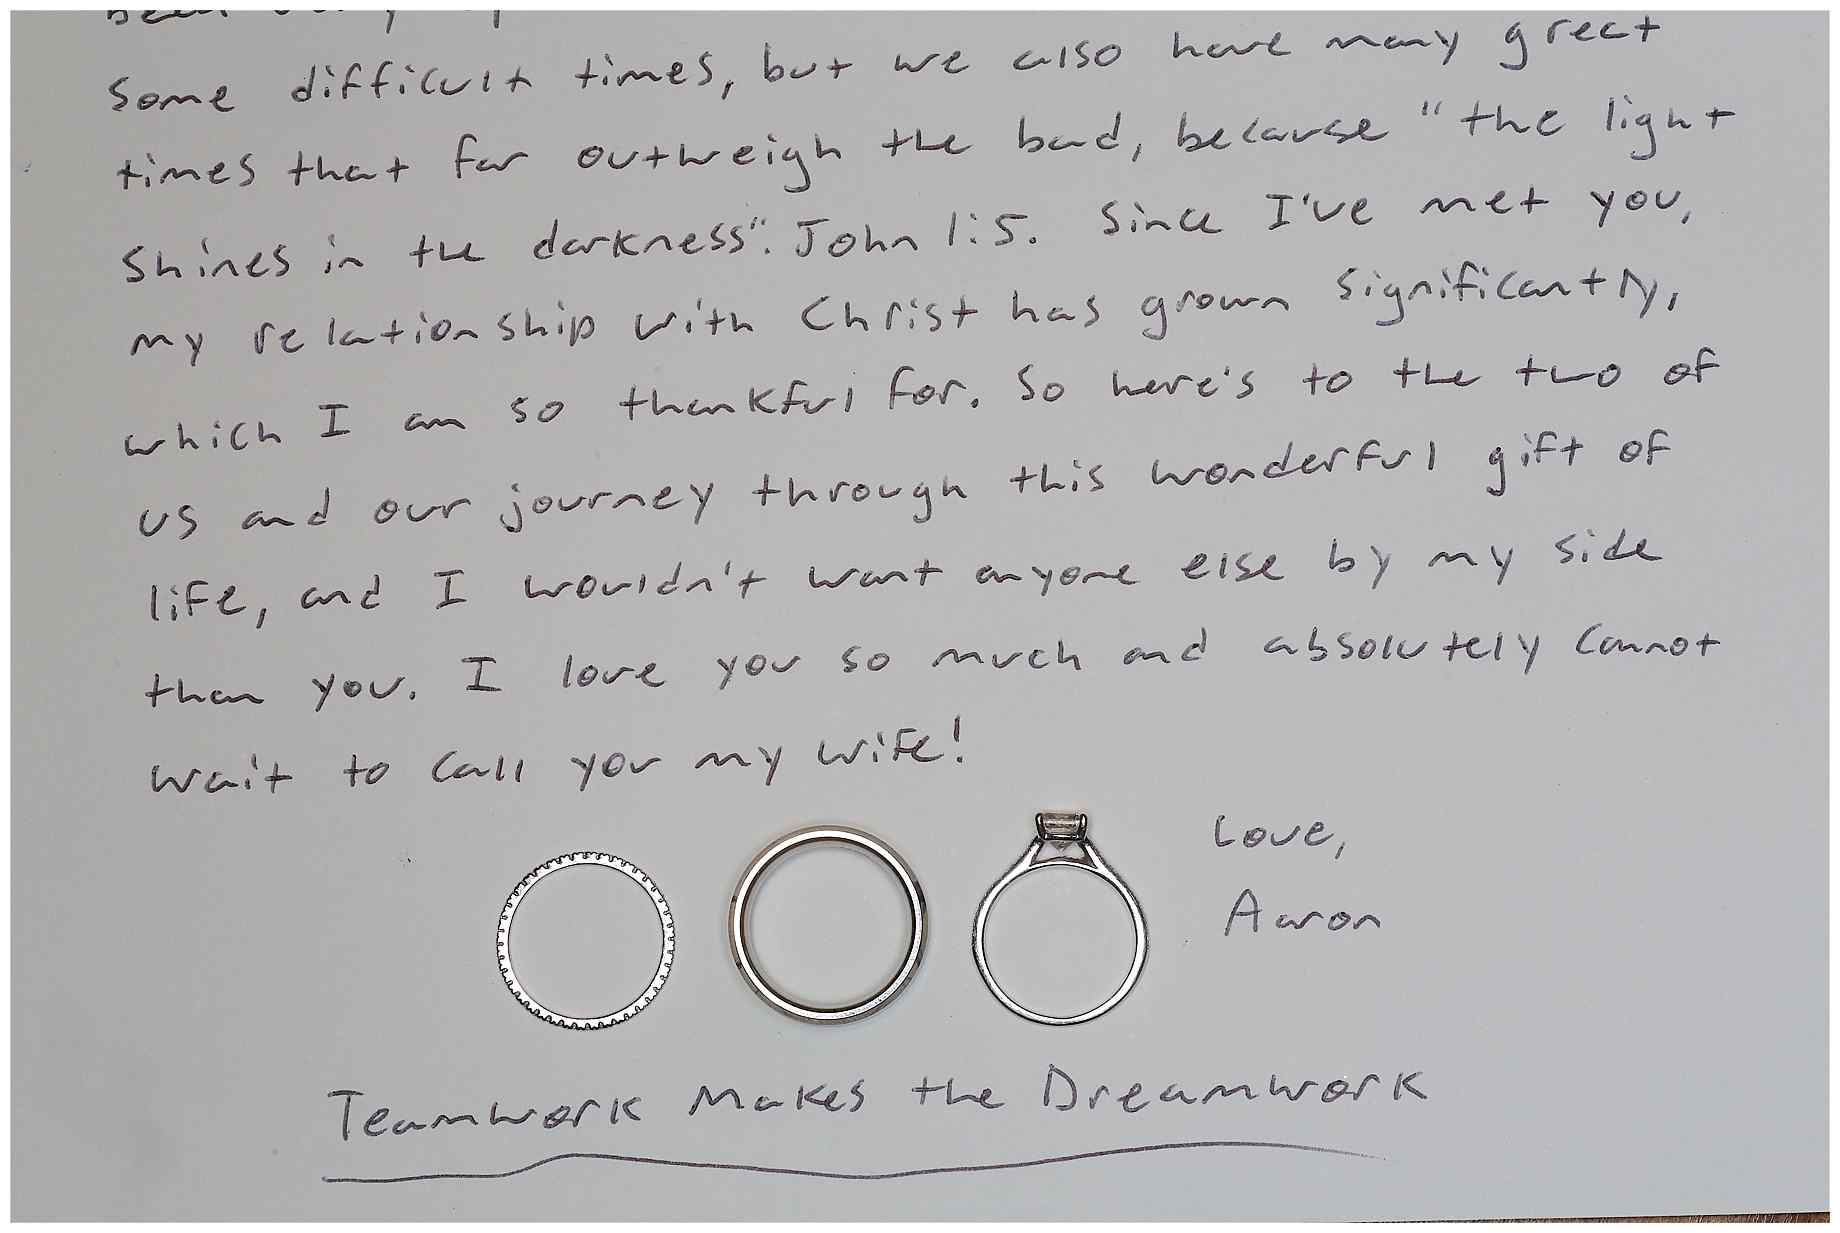 been
some difficult times, but we also have many great
times that far outweigh the bad, because "the light
shines in the darkness". John 1:5. Since I've met you,
my relationship with Christ has grown significantly,
which I am so thankful for. So here's to the two of
us and our journey through this wonderful gift of
life, and I wouldn't want anyone else by my side
than you. I love you so much and absolutely cannot
wait to call you my wife!
Love,
Aaron
Teamwork Makes the Dreamwork